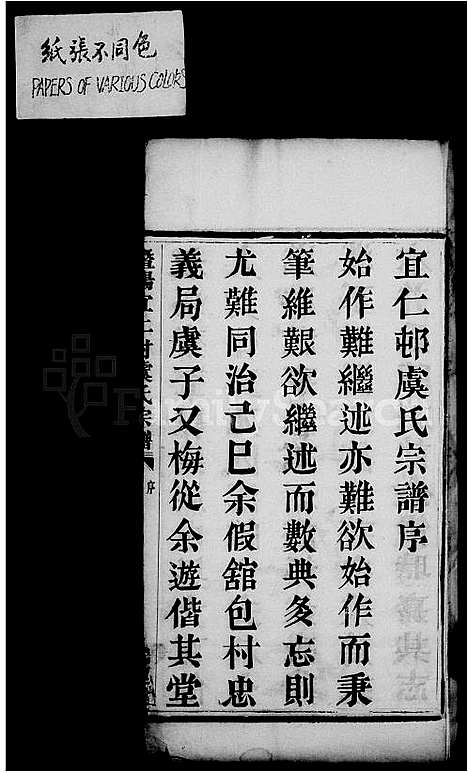 紙張不同色
PAPERS OF VARIOUS COLORS
宜仁邨虞氏宗譜序
始作難繼述亦難欲始作而秉
筆維艱欲繼述而數典多忘則
尤難同治己巳余假舘包村忠
義局虞子又梅從余遊偕其堂
暨陽宜仁村虞氏宗譜 序
FamilySearch